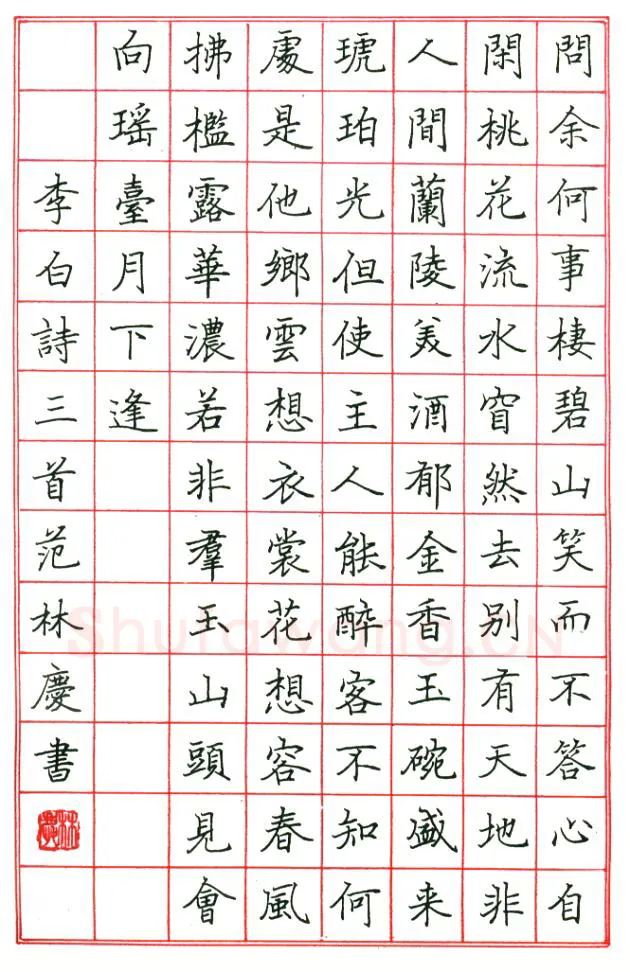 問余何事棲碧山笑而不答心自
閑桃花流水窅然去別有天地非
人間蘭陵美酒郁金香玉碗盛来
琥珀光但使主人能醉客不知何
處是他鄉雲想衣裳花想容春風
拂檻露華濃若非羣玉山頭見會
向瑶臺月下逢
李白詩三首范林慶書
林慶
Shufawang.CN